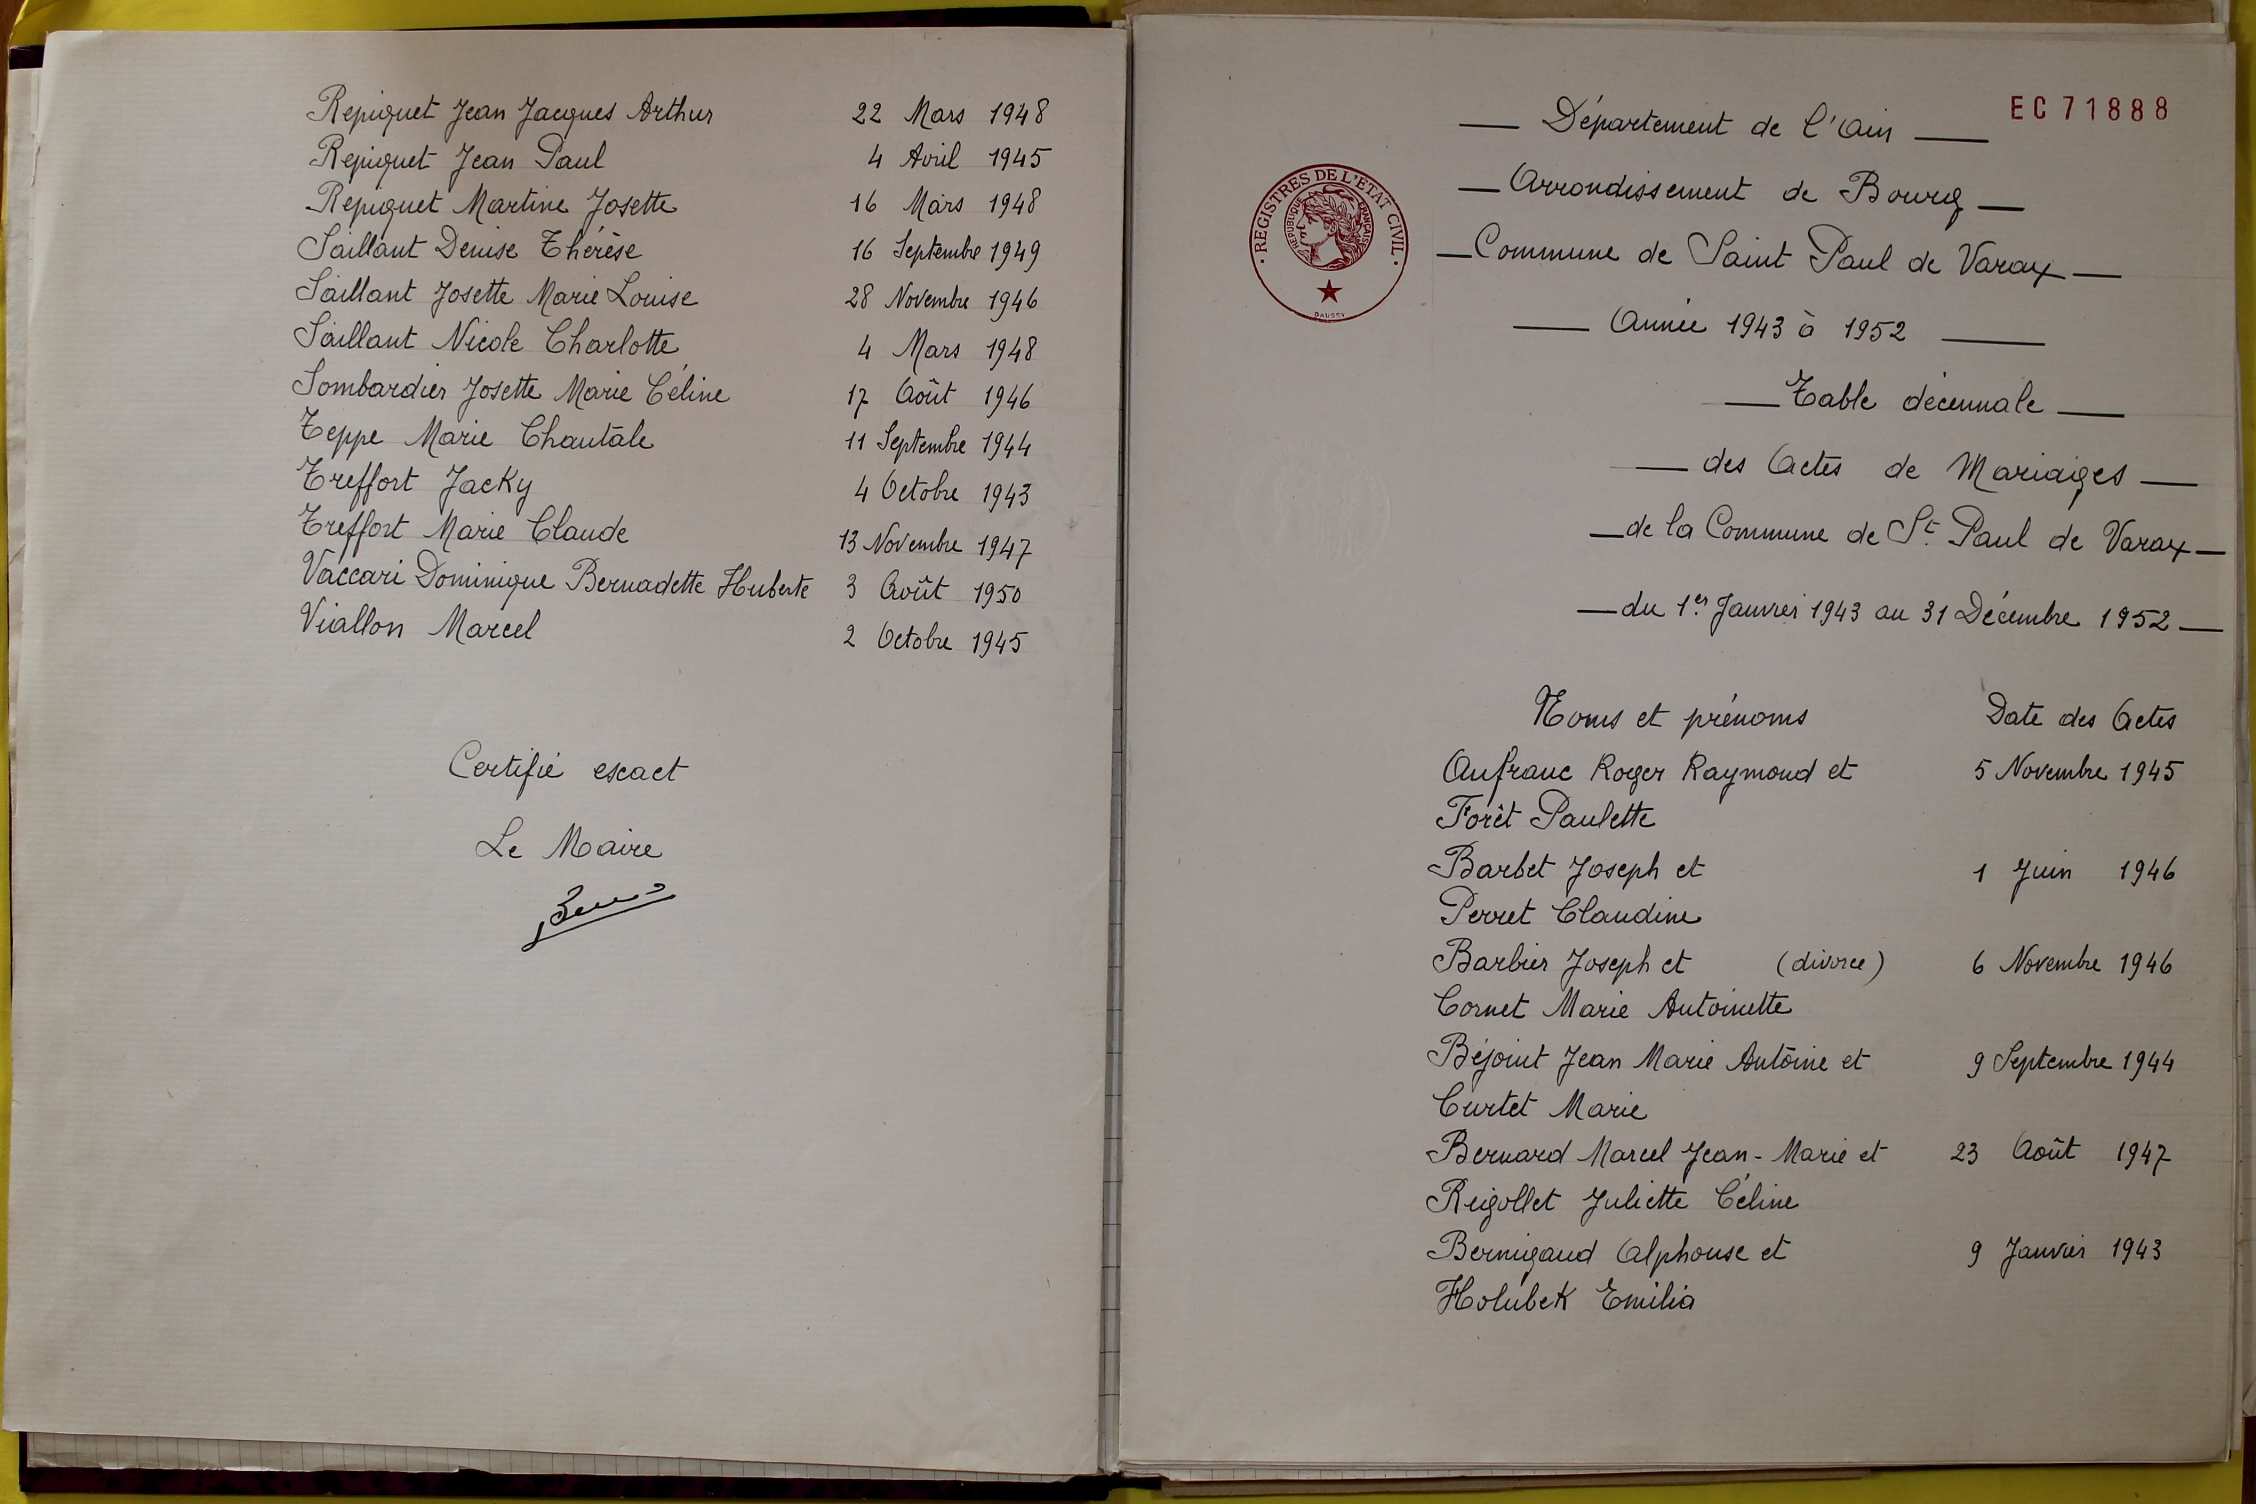 Repiquet Jean Jacques Arthur 22 Mars 1948
Repiquet Jean Paul 4 Avril 1945
Repiquet Martine Josette 16 Mars 1948
Saillant Denise Thérèse 16 Septembre 1949
Saillant Josette Marie Louise 28 Novembre 1946
Saillant Nicole Charlotte 4 Mars 1948
Sombardier Josette Marie Céline 17 Août 1946
Teppe Marie Chantale 11 Septembre 1944
Treffort Jacky 4 Octobre 1943
Treffort Marie Claude 13 Novembre 1947
Vaccari Dominique Bernadette Huberte 3 Août 1950
Viallon Marcel 2 Octobre 1945
Certifié exact
Le Maire
EC 71888
Département de l'Ain
Arrondissement de Bourg
Commune de Saint Paul de Varax
Année 1943 à 1952
Table décennale
des Actes de Mariages
de la Commune de St. Paul de Varax
du 1er Janvier 1943 au 31 Décembre 1952
REGISTRES DE L'ETAT CIVIL
REPUBLIQUE FRANÇAISE
DAUSSY
Noms et prénoms Date des Actes
Aufranc Roger Raymond et 5 Novembre 1945
Forêt Paulette
Barbet Joseph et 1 Juin 1946
Perret Claudine
Barbier Joseph et (divorce) 6 Novembre 1946
Cornet Marie Antoinette
Béjoint Jean Marie Antoine et 9 Septembre 1944
Curtet Marie
Bernard Marcel Jean-Marie et 23 Août 1947
Rigollet Juliette Céline
Bernigaud Alphonse et 9 Janvier 1943
Holubek Emilia